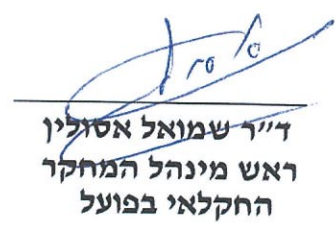 ד״ר שמואל אסולין
ראש מינהל המחקר
החקלאי בפועל